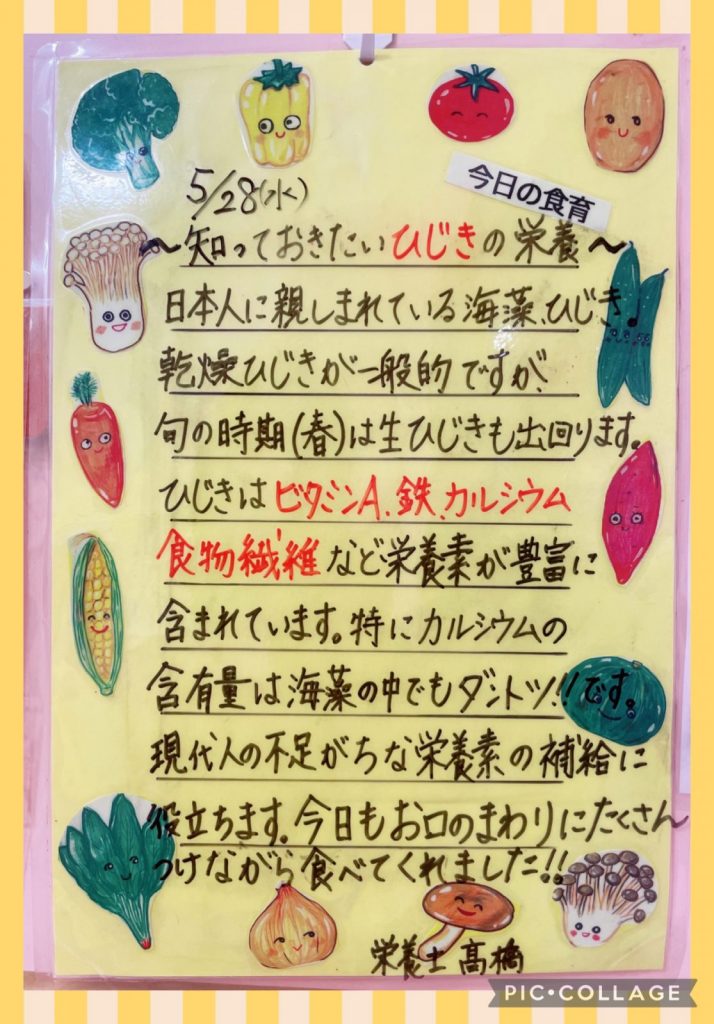 今日の食育
5/28(水)
～知っておきたいひじきの栄養～
日本人に親しまれている海藻、ひじき
乾燥ひじきが一般的ですが、
旬の時期(春)は生ひじきも出回ります。
ひじきはビタミンA、鉄、カルシウム
食物繊維など栄養素が豊富に
含まれています。特にカルシウムの
含有量は海藻の中でもダントツ!!です。
現代人の不足がちな栄養素の補給に
役立ちます。今日もお口のまわりにたくさん
つけながら食べてくれました!!
栄養士 高橋
PIC•COLLAGE